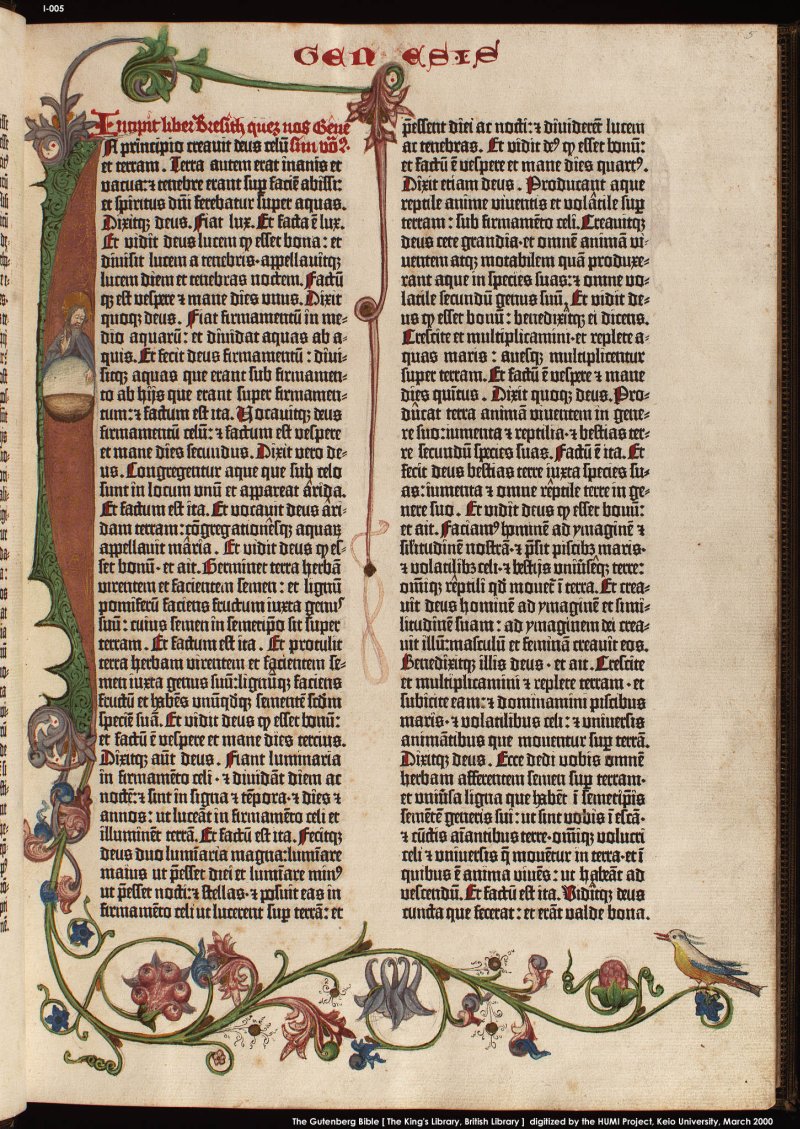 I-005
5
GENESIS
Incipit liber Bresith quez nos Gene
IN principio creavit deus celū sim vōꝫ.
et terram. Terra autem erat inanis et
vacua: ⁊ tenebre erant suꝑ faciē abissi:
et spiritus dn̄i ferebatur super aquas.
Dixitqꝫ deus. Fiat lux. Et facta ē lux.
Et vidit deus lucem ꝙ esset bona: et
divisit lucem a tenebris· appellavitqꝫ
lucem diem et tenebras noctem. Factū
qꝫ est vespere ⁊ mane dies unus. Dixit
quoqꝫ deus. Fiat firmamentū in me-
dio aquarū: et dividat aquas ab a-
quis. Et fecit deus firmamentū: divi-
sitqꝫ aquas que erant sub firmamen-
to ab hijs que erant super firmamen-
tum: ⁊ factum est ita. Vocavitqꝫ deus
firmamentū celū: ⁊ factum est vespere
et mane dies secundus. Dixit vero de-
us. Congregentur aque que sub celo
sunt in locum unū et appareat arida.
Et factum est ita. Et vocavit deus ari-
dam terram: cōgregationēsqꝫ aquaꝝ
appellavit maria. Et vidit deus ꝙ es-
set bonū· et ait. Germinet terra herbā
virentem et facientem semen: et lignū
pomiferū faciens fructum iuxta genꝰ
suū: cuius semen in semetipo sit super
terram. Et factum est ita. Et protulit
terra herbam virentem et facientem se-
men iuxta genus suū: lignūqꝫ faciens
fructū et habēs unūqdqꝫ sementē scdm
speciē suā. Et vidit deus ꝙ esset bonū:
et factū ē vespere et mane dies tercius.
Dixitqꝫ aūt deus. Fiant luminaria
in firmamēto celi· ⁊ dividāt diem ac
noctē: ⁊ sint in signa ⁊ tēpora· ⁊ dies ⁊
annos: ut luceāt in firmamēto celi et
illuminēt terrā. Et factū est ita. Fecitqꝫ
deus duo lumiaria magna: lumiare
maius ut p̄esset diei et lumiare minꝰ
ut p̄esset nocti: ⁊ stellas· ⁊ posuit eas in
firmamēto celi ut lucerent suꝑ terrā: et
p̄essent diei ac nocti: ⁊ dividerēt lucem
ac tenebras. Et vidit deꝰ ꝙ esset bonū:
et factū ē vespere et mane dies quartꝰ.
Dixit etiam deus. Producant aque
reptile anime viventis et volatile suꝑ
terram: sub firmamēto celi. Creavitqꝫ
deus cete grandia· et omnē animā vi-
ventem atqꝫ motabilem quā produxe-
rant aque in species suas: ⁊ omne vo-
latile secundū genus suū. Et vidit de-
us ꝙ esset bonū: benedixitqꝫ ei dicens.
Crescite et multiplicamini· et replete a-
quas maris: avesqꝫ multiplicentur
super terram. Et factū ē vespere ⁊ mane
dies quītus. Dixit quoqꝫ deus. Pro-
ducat terra animā viventem in gene-
re suo: iumenta ⁊ reptilia· ⁊ bestias ter-
re secundū species suas. Factū ē ita. Et
fecit deus bestias terre iuxta species su-
as: iumenta ⁊ omne reptile terre in ge-
nere suo. Et vidit deus ꝙ esset bonū:
et ait. Faciamꝰ hominē ad ymaginē ⁊
silitudinē nostrā· ⁊ p̄sit piscibꝫ maris·
⁊ volatilibꝫ celi· ⁊ bestijs univsēqꝫ terre:
omīqꝫ reptili qd movet ī terra. Et crea-
vit deus hominē ad ymaginē et simi-
litudinē suam: ad ymaginem dei crea-
vit illū: masculū et feminā creavit eos.
Benedixitqꝫ illis deus· et ait. Crescite
et multiplicamini ⁊ replete terram· et
subicite eam: ⁊ dominamini piscibus
maris· ⁊ volatilibus celi: ⁊ universis
animātibus que moventur suꝑ terrā.
Dixitqꝫ deus. Ecce dedi vobis omnē
herbam afferentem semen suꝑ terram·
et univsa ligna que habēt ī semetipis
semētē generis sui: ut sint vobis ī escā·
⁊ cūctis aīantibus terre· omīqꝫ volucri
celi ⁊ universis q̄ movētur in terra· et ī
quibus ē anima vivēs: ut habeāt ad
vescendū. Et factū est ita. Viditqꝫ deus
cuncta que fecerat: et erāt valde bona.
The Gutenberg Bible [ The King's Library, British Library ] digitized by the HUMI Project, Keio University, March 2000